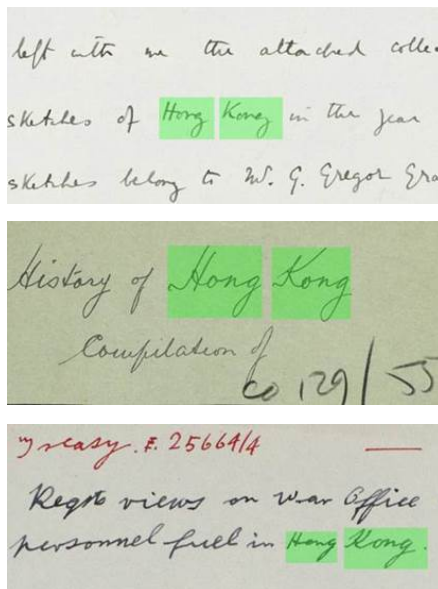 left with me the attached colle
sketches of Hong Kong in the year
sketches belong to W. G. Gregor Gra
History of Hong Kong
Compilation of
CO 129/55
Treasy. F. 25664/4
Reqts views on War Office
personnel fuel in Hong Kong.